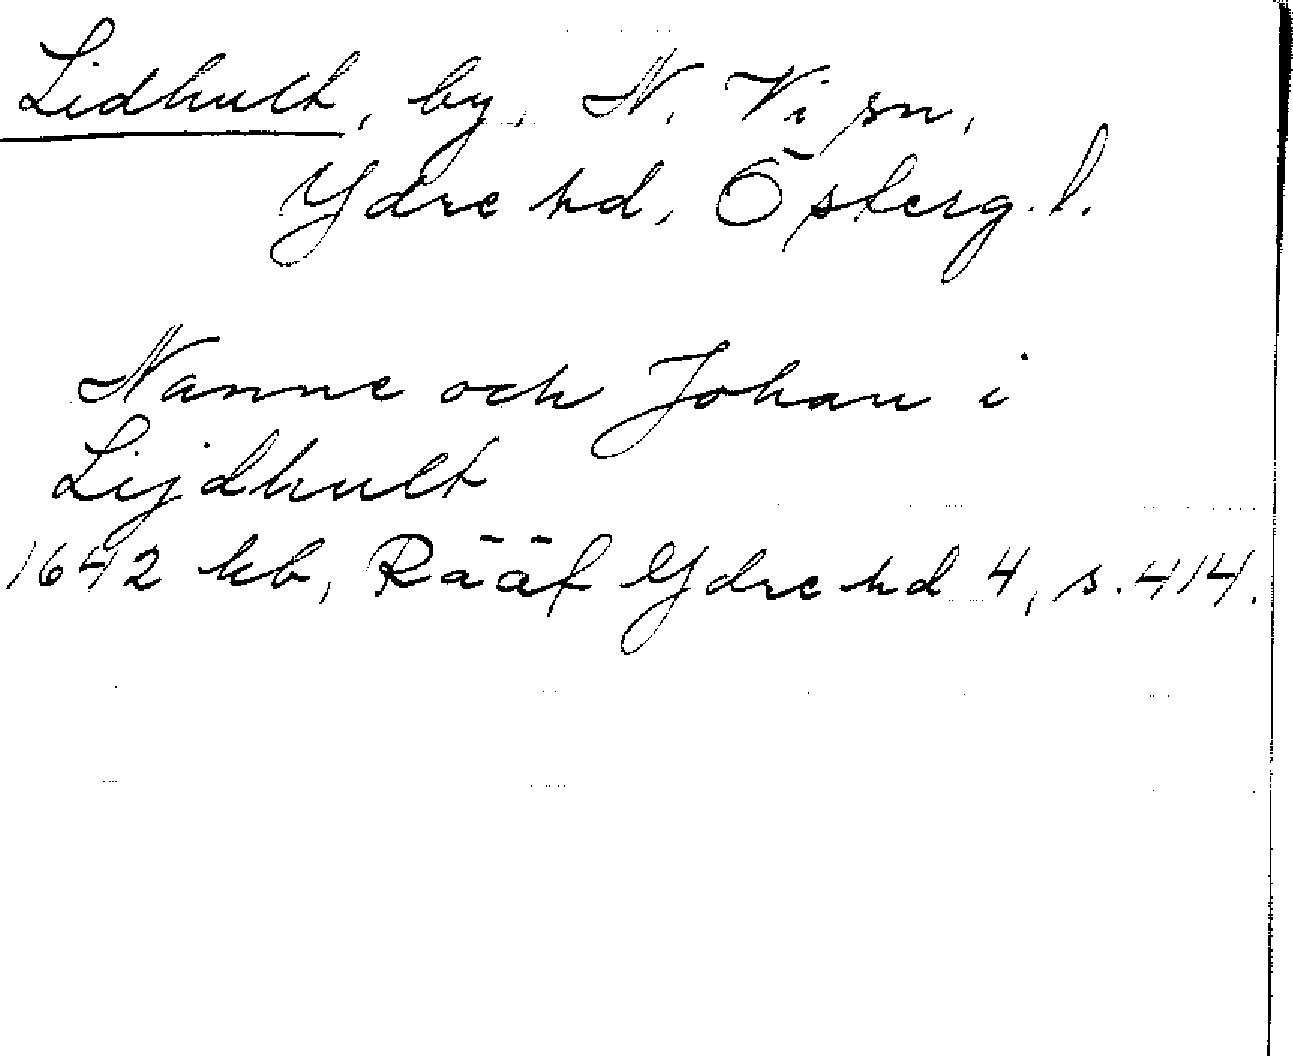 Lidhult, by, N. Vi sn,
Ydre hd, Österg. l.
Nanne och Johan i
Lijdhult
1642 kb, Rääf Ydre hd 4, s. 414.